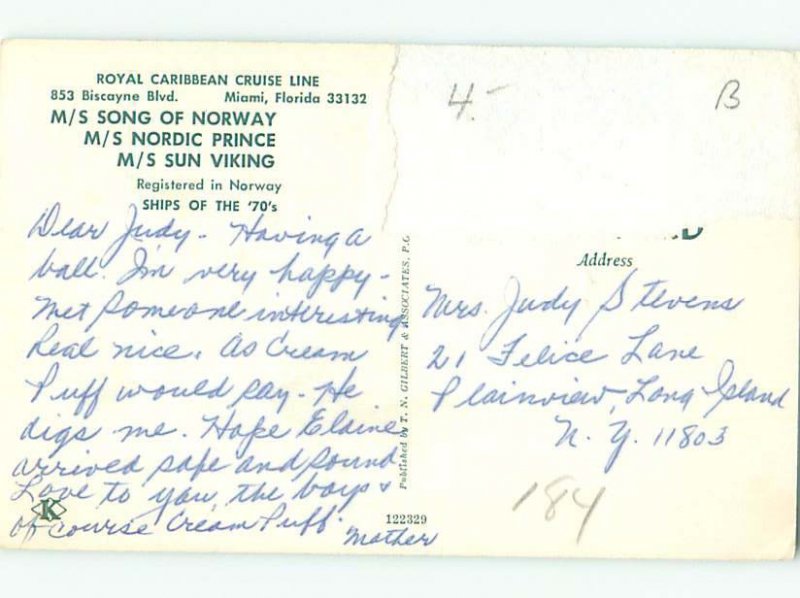 ROYAL CARIBBEAN CRUISE LINE
853 Biscayne Blvd. Miami, Florida 33132
M/S SONG OF NORWAY
M/S NORDIC PRINCE
M/S SUN VIKING
Registered in Norway
SHIPS OF THE '70's
Dear Judy - Having a
ball. I'm very happy -
met someone interesting
Real nice. As Cream
Puff would say - He
digs me. Hope Elaine
arrived safe and sound
Love to you, the boys &
of course Cream Puff.
Mother
K
Published by T. N. GILBERT & ASSOCIATES, P.O
122329
4.-
B
D
Address
Mrs. Judy Stevens
21 Felice Lane
Plainview, Long Island
N. Y. 11803
184